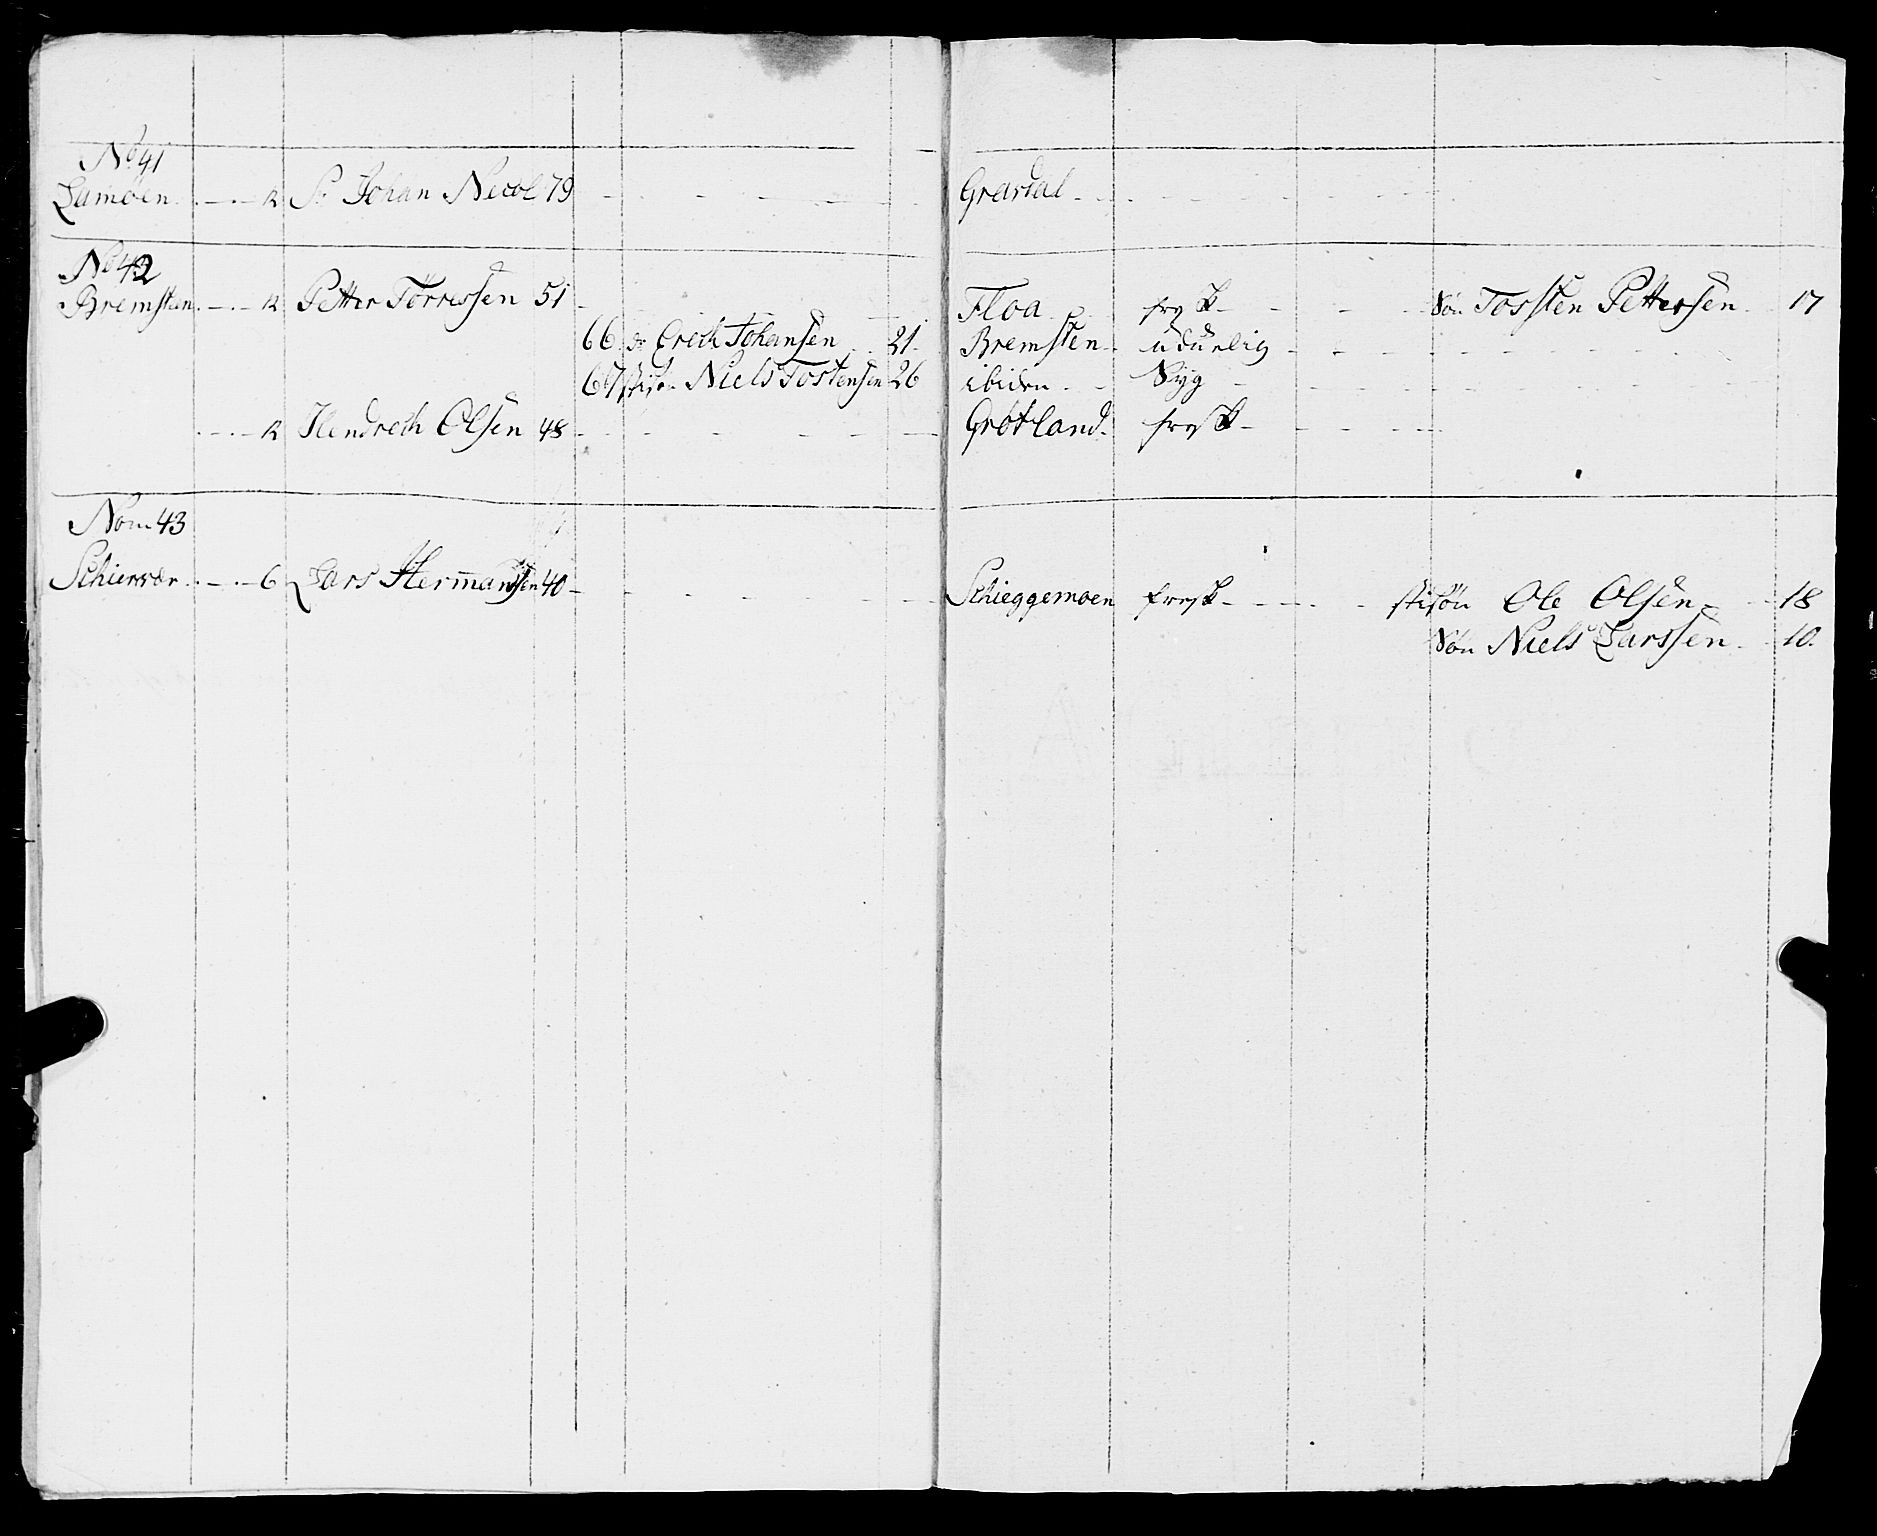 No 41
Lamoen - - R Sr Johan Necol 79 - - - - Grasdal - - - -
No 42
Bremsteen - - R Petter Törressen 51 - - Floa - frysk - - - Sön Tossten Pettersen - 17
66 Erech Johansen - 21 - Bremsten - udurlig - - - -
67 stisön Niels Tostensen 26 ibidm - Syg - - - -
- - R Hendrech Olsen 48 - - - - Grötland - frysk - - - -
Nom 43
Schiervær - - 6 Lars Hermansen 40 - - - - Schieggemoen frysk - - - - stisön Ole Olsen - 18
Sön Niels Larssen - 10